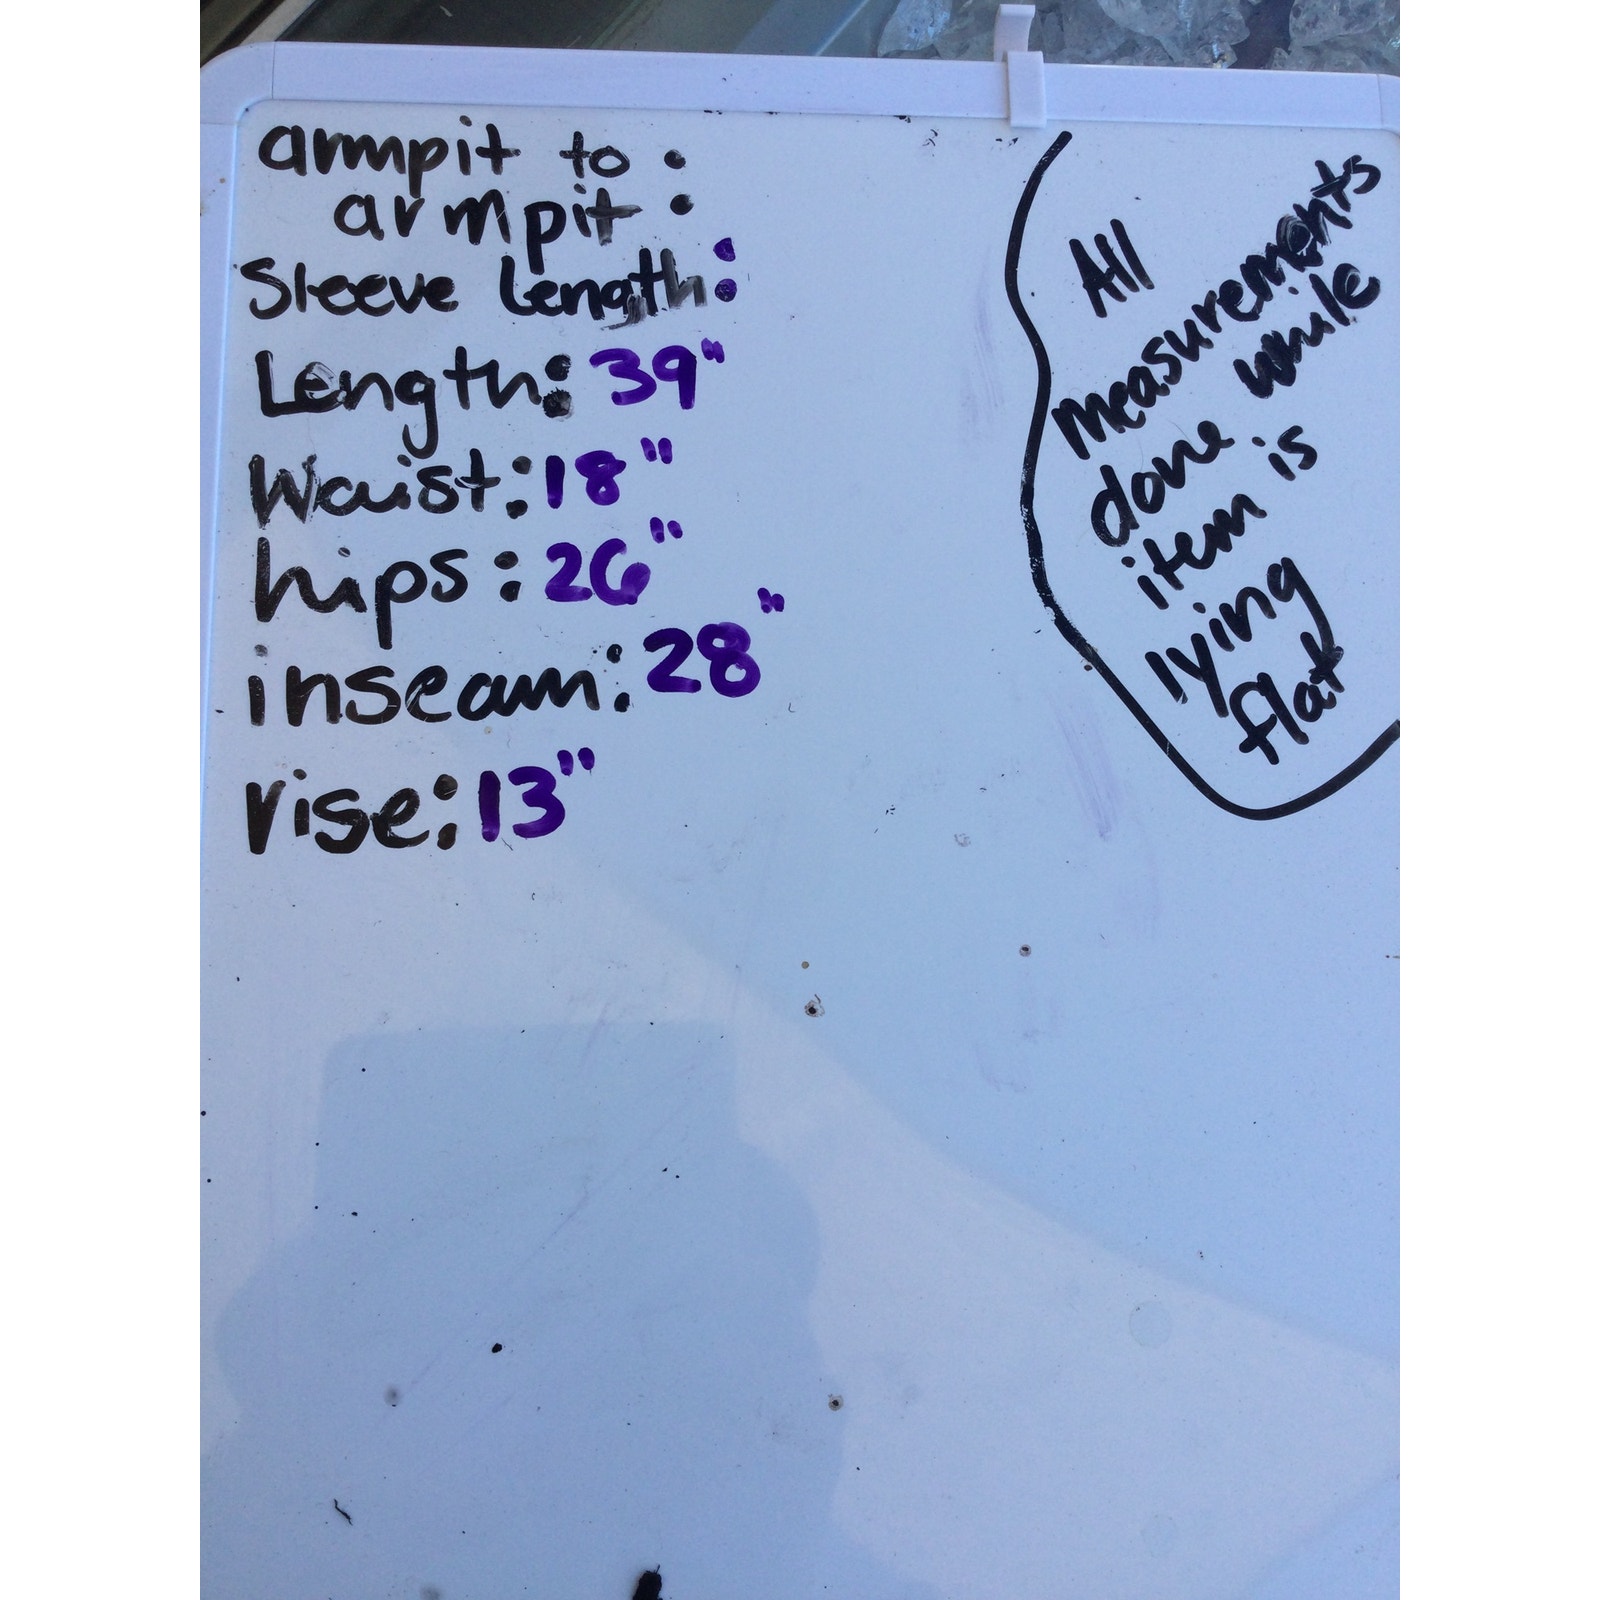 armpit to :
armpit
Sleeve Length:
Length: 39"
Waist: 18"
hips: 26"
inseam: 28"
rise: 13"
All
measurements
done while
item is
lying
flat